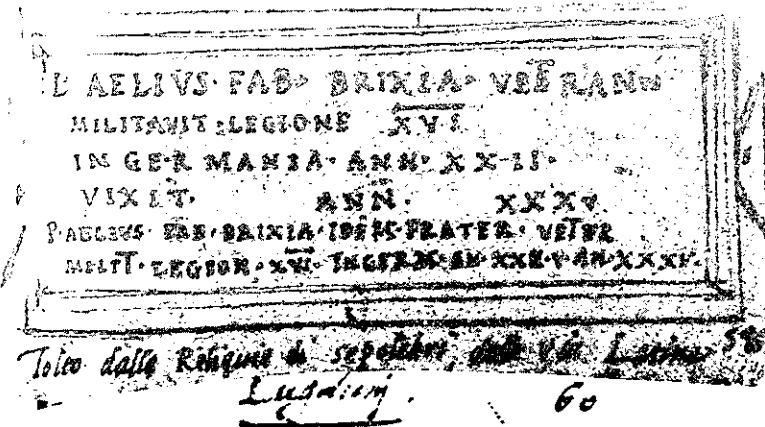 L AELIVS·FAB· BRIXIA· VETERANVS
MILITAVIT·LEGIONE XVI
IN GERMANIA·ANN·XX·II·
VIXIT· ANN· XXXV
P·AELIVS·FAB·BRIXIA·IDEM·FRATER·VETER
MILIT·LEGION·XVI·INGERM·AN·XXII·V·AN·XXXV·
Tolto dalle Reliquie di sepolchri dalla via Latina 58
60